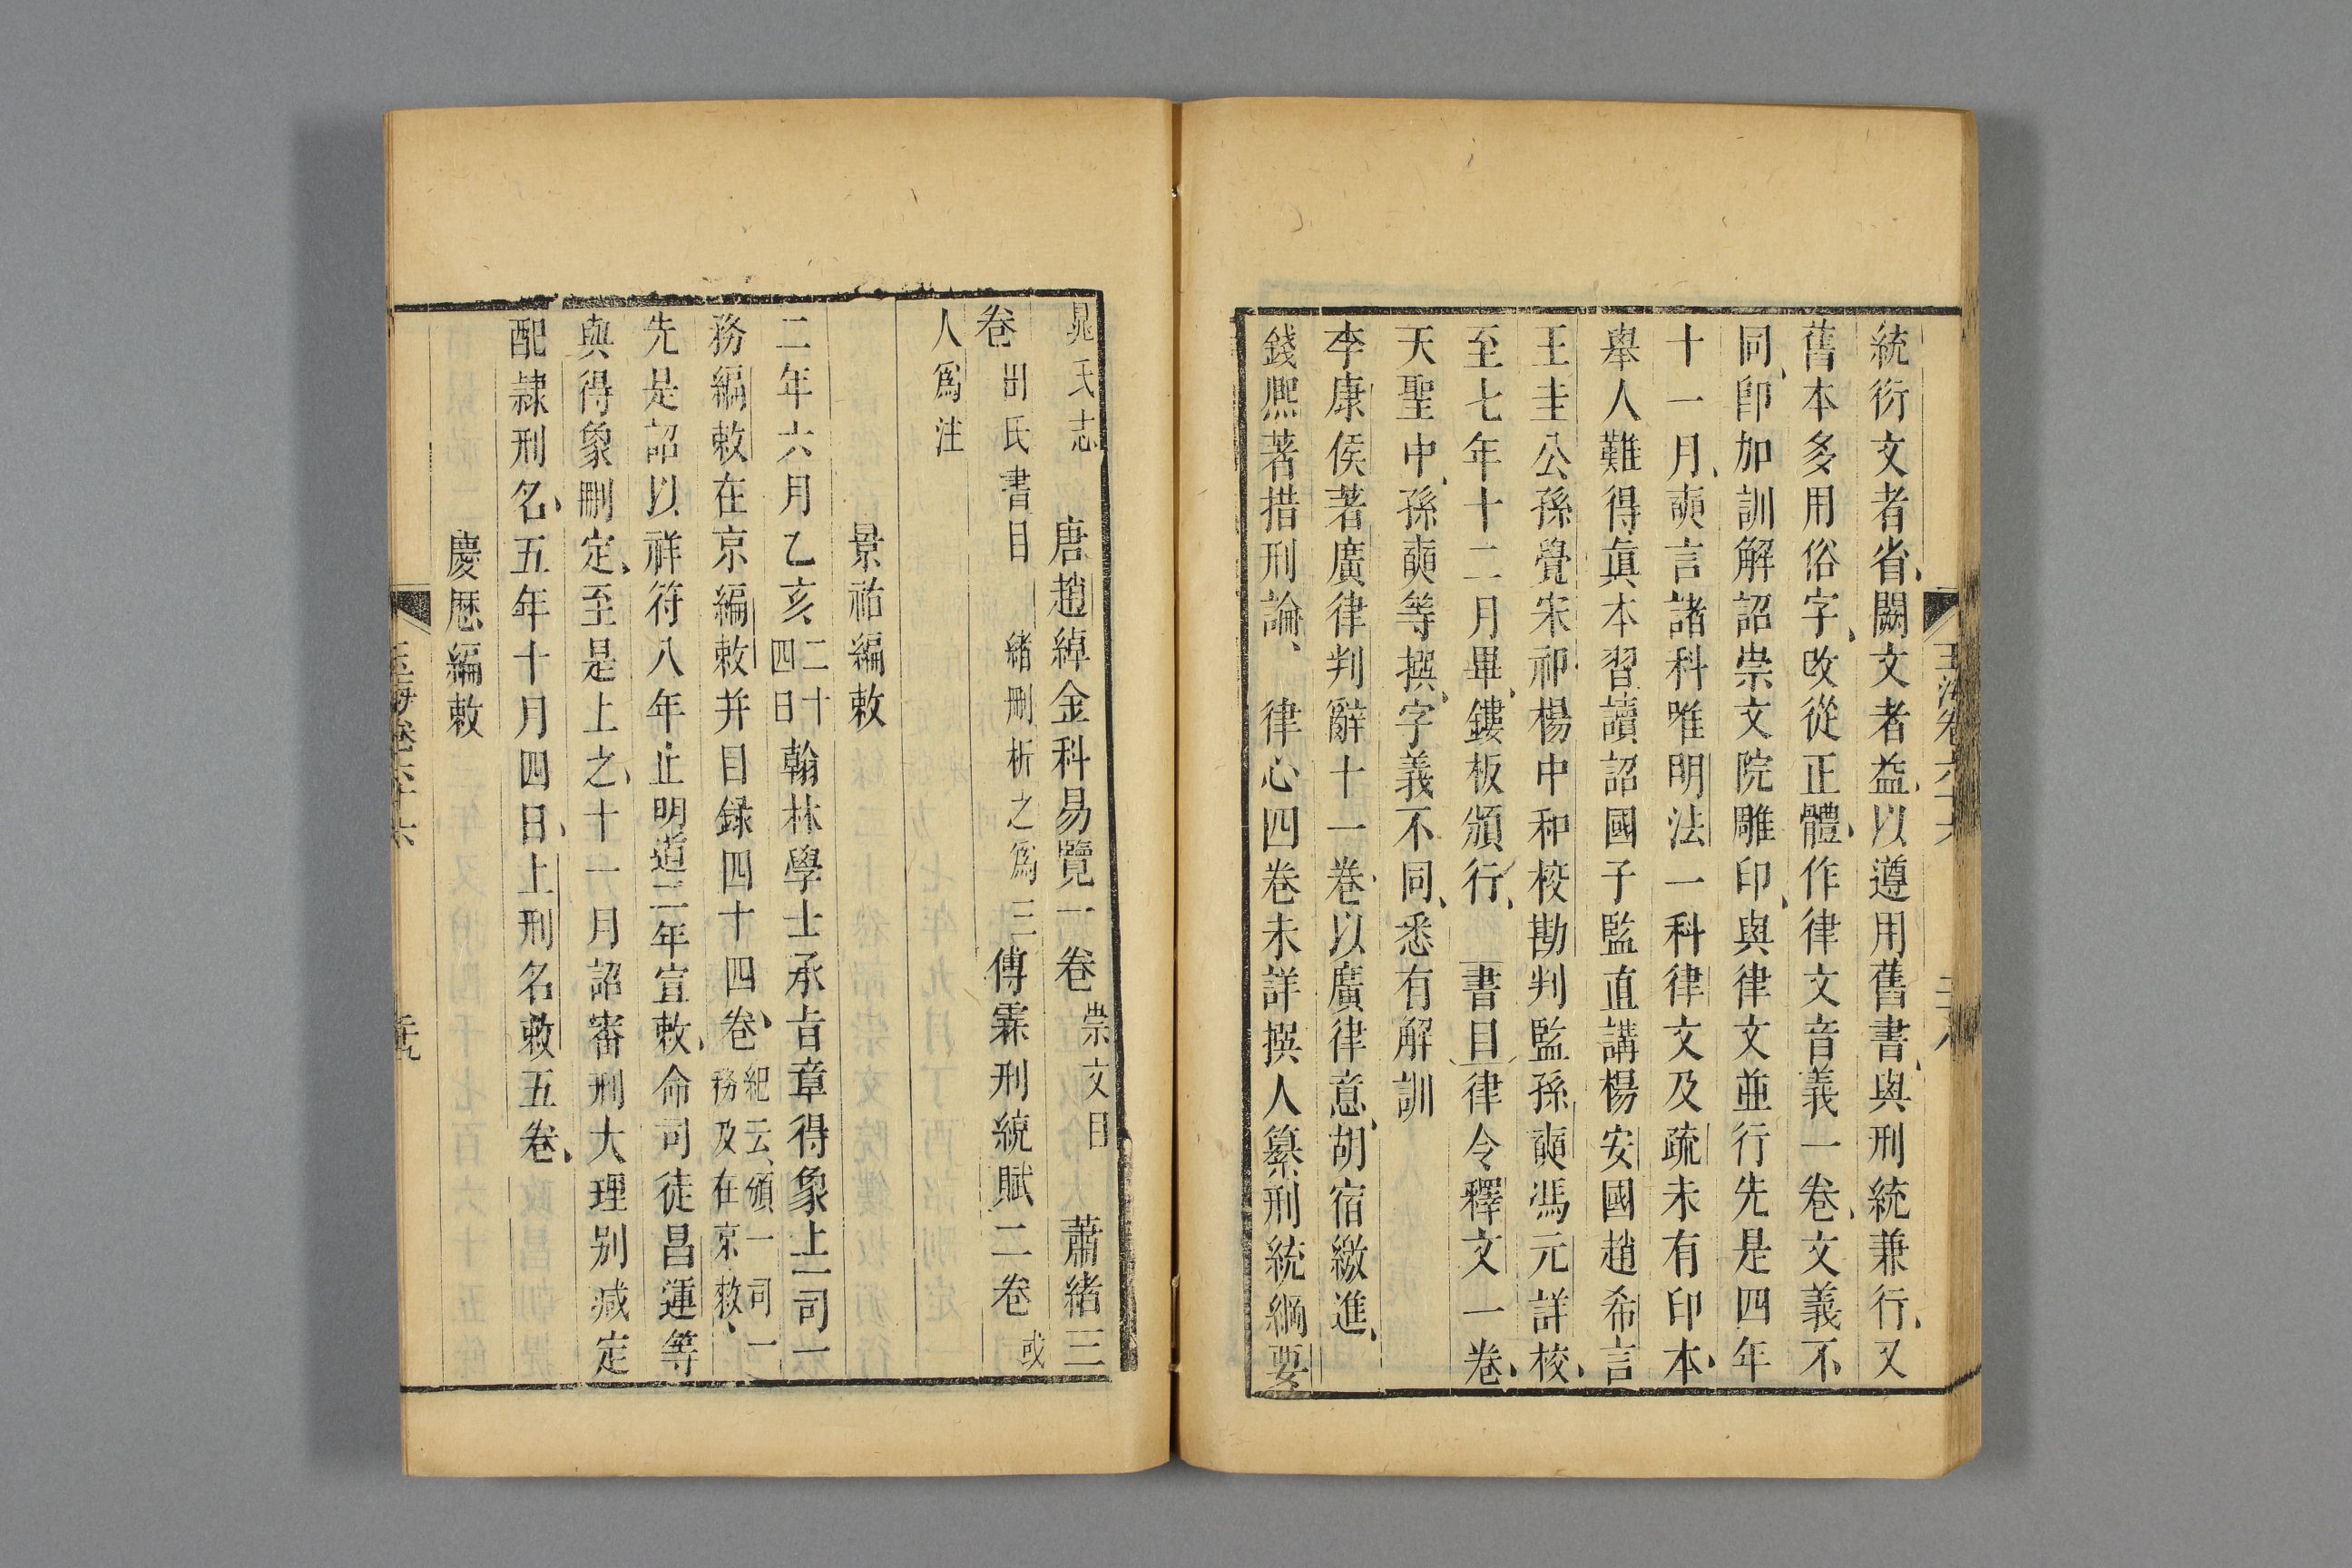 統衍文者省闕文者益以遵用舊書與刑統兼行又
舊本多用俗字改從正體作律文音義一卷文義不
同即加訓解詔崇文院雕印與律文並行先是四年
十一月奭言諸科唯明法一科律文及疏未有印本
舉人難得真本習讀詔國子監直講楊安國趙希言
王圭公孫覺宋祁楊中和校勘判監孫奭馮元詳校
至七年十二月畢鏤板頒行 書目律令釋文一卷
天聖中孫奭等撰字義不同悉有解訓
李康侯著廣律判辭十一卷以廣律意胡宿繳進
錢熙著措刑論 律心四卷未詳撰人纂刑統綱要
晁氏志 唐趙綽金科易覽一卷 崇文目 蕭緒三
卷 書目 緒刪析之爲三 傅霖刑統賦二卷 或
人爲注
景祐編敕
二年六月乙亥 二十四日 翰林學士承旨章得象上一司一
務編敕在京編敕并目録四十四卷 紀云頒一司一務及在京敕
先是詔以祥符八年止明道二年宣敕命司徒昌運等
與得象刪定至是上之十一月詔審刑大理别減定
配隸刑名五年十月四日上刑名敕五卷
慶歷編敕
玉海卷六十六